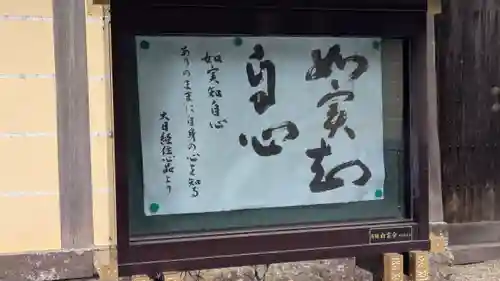 如実知
自心
如実知自心
ありのままに自身の心を知る
大日経住心品より